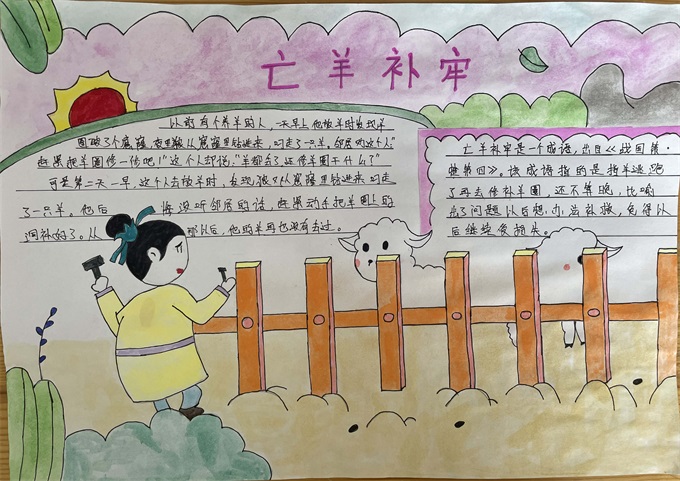 亡羊补牢
以前有个养羊的人，一天早上他放羊时发现羊
圈破了个窟窿，夜里狼从窟窿里钻进来，叼走了一只羊。邻居劝这个人
赶紧把羊圈修一修吧！"这个人却说："羊都丢了还修羊圈干什么？"
可是第二天一早，这个人去放羊时，发现狼又从窟窿里钻进来叼走
了一只羊。他后悔没听邻居的话，赶紧动手把羊圈上的
洞补好了。从那以后，他的羊再也没有丢过。
亡羊补牢是一个成语，出自《战国策·
楚策四》，该成语指的是指羊逃跑
了再去修补羊圈，还不算晚，比喻
出了问题以后想办法补救，免得以
后继续受损失。